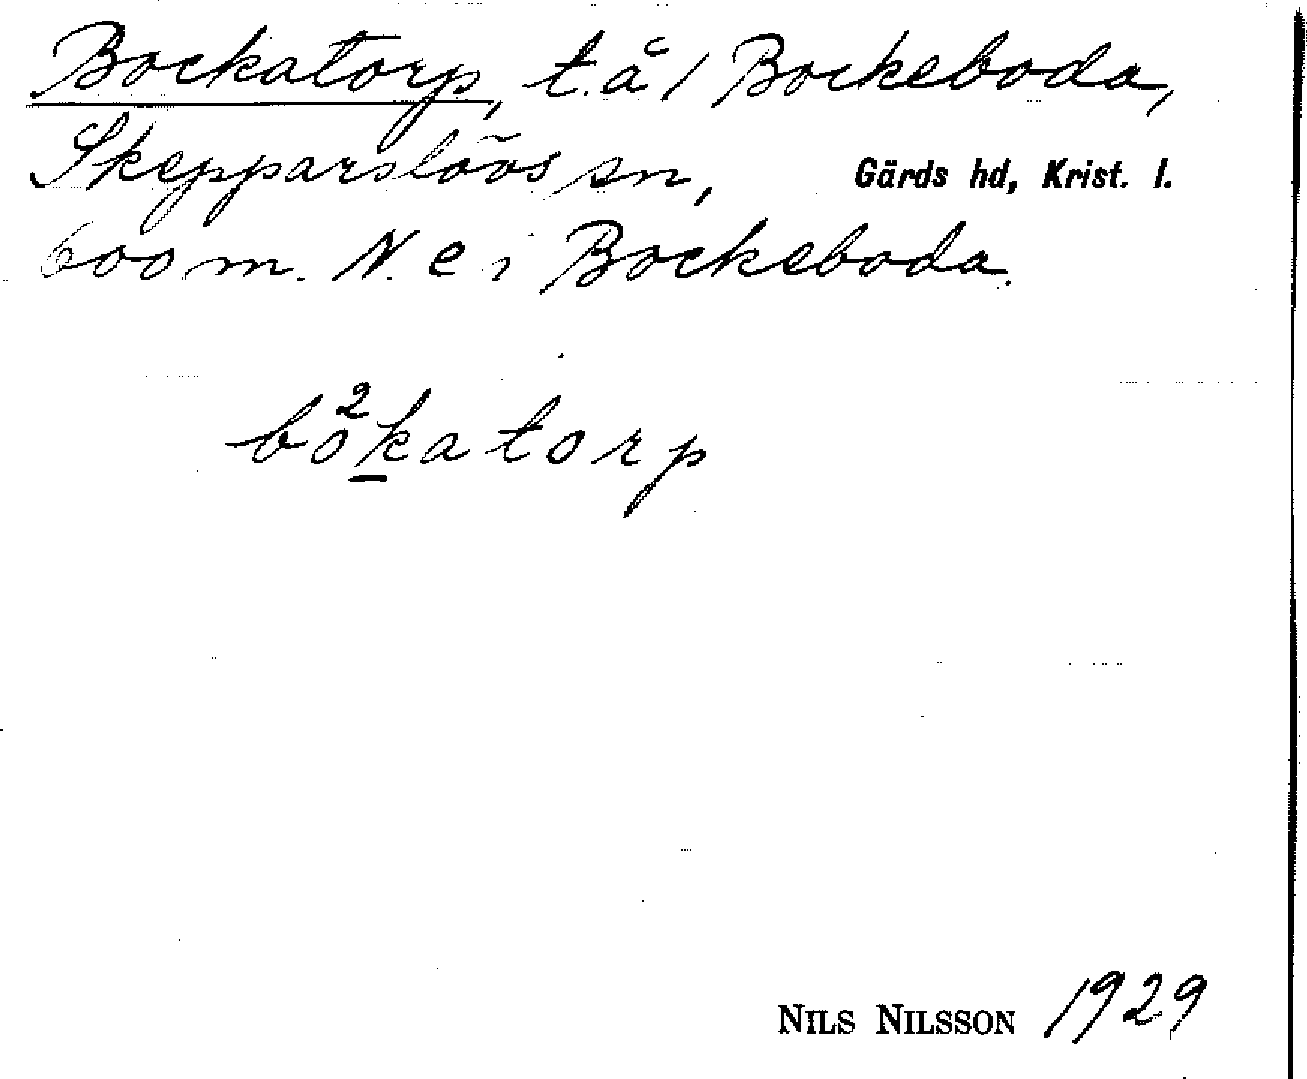 Bockatorp, t. å / Bockeboda,
Skepparslövs sn, Gärds hd, Krist. l.
600 m. N. e i Bockeboda.
bo²k̲atorp
NILS NILSSON 1929